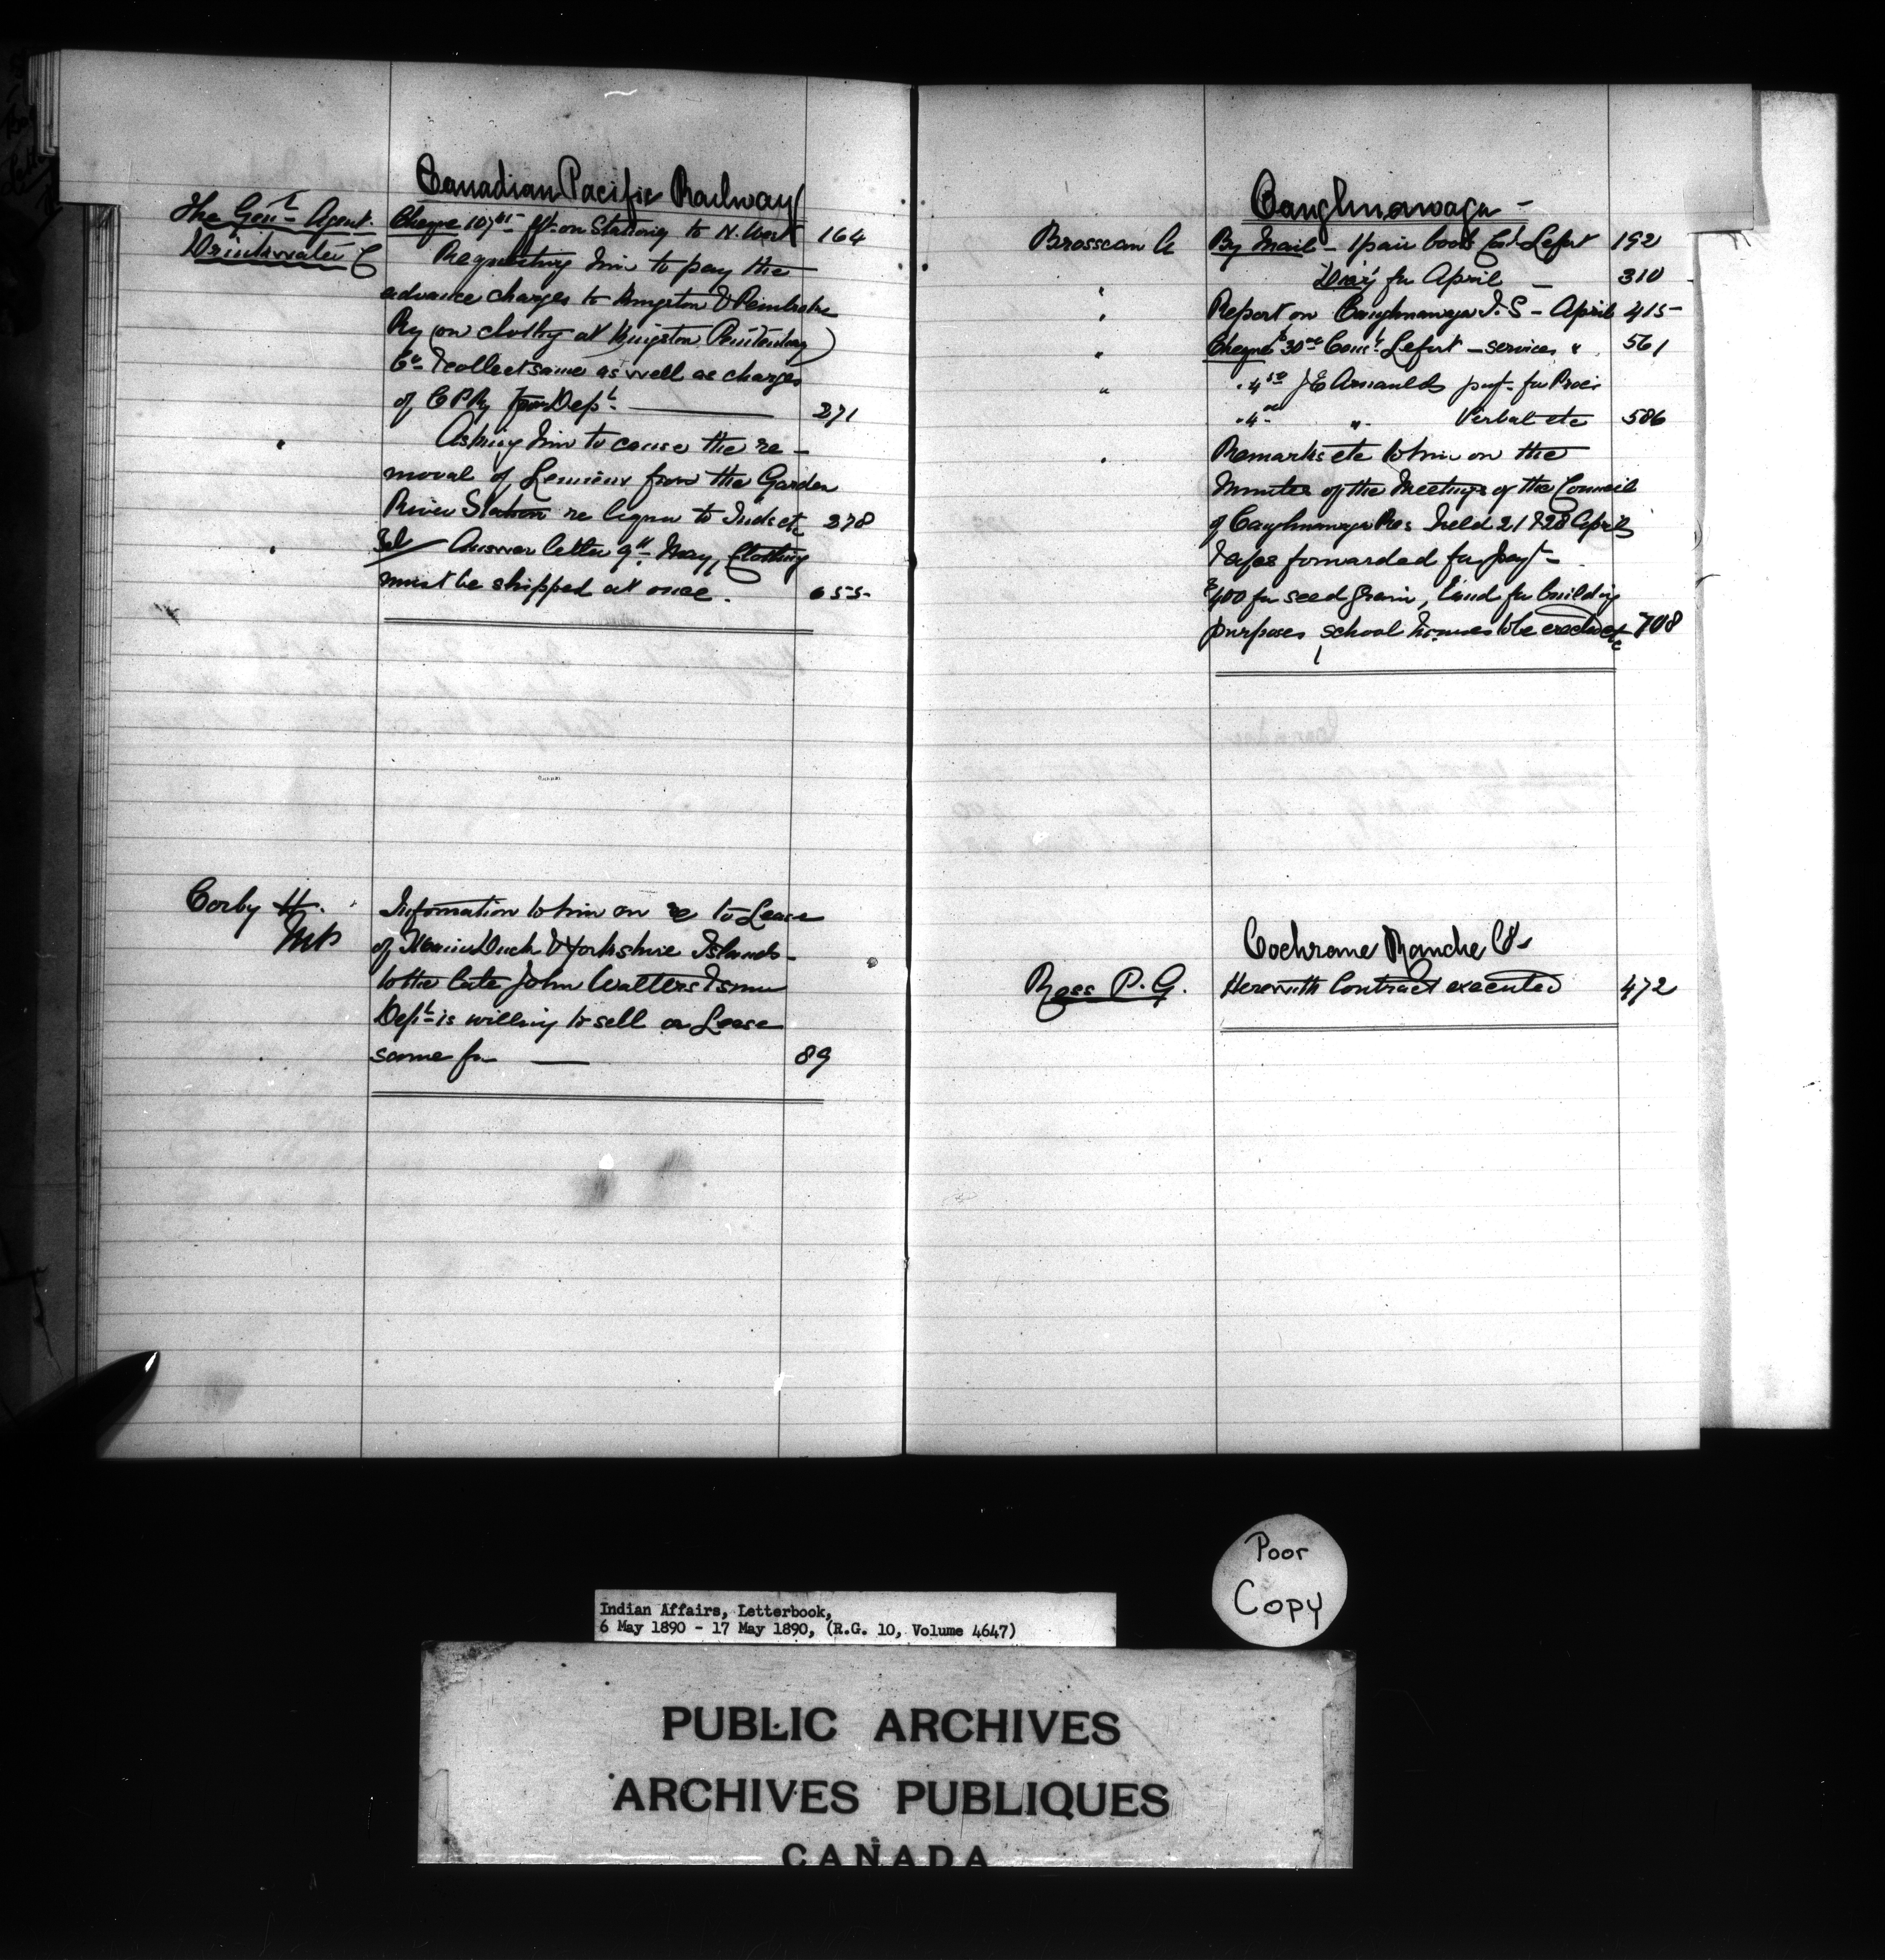 Canadian Pacific Railway
The Gen.l Agent. Cheque 107 frt on Stationy to N. West 164
Drinkwater C Requesting him to pay the
advance charges to Kingston & Pembroke
Ry (on clothg at Kingston Penitentiary)
Co & collect same as well as charges
of C P Ry from Dept. 271
" Asking him to cause the re-
moval of Lemieux from the Garden
River Station re liquor to Inds etc 278
" Tel Answer letter 9th May, Clothing
must be shipped at once. 655
Corby H. Information to him on re to Lease
MP of Duck & Yorkshire Islands
to the late John Walters & snr
Dept is willing to sell or Lease
same for — 89
Caughnawaga -
Brosseau A By Mail - 1 pair boots Cons.t Lefort 192
" Diary for April — 310
" Report on Caughnawaga I.S - April 415
" Cheque $30 00 Cons.t Lefort - services " 561
" " 4 50 J E Arnauld payt. for Procès
" 4 00 " Verbal etc 586
" Remarks etc to him on the
Minutes of the Meetings of the Council
of Caughnawaga Res held 21 & 28 April
forwarded for payt -
$400 for seed grain, Land for building
purposes, school houses to be erected etc 708
Cochrane Ranche Co
Ross P. G. Herewith Contract executed 472
Poor
Copy
Indian Affairs, Letterbook,
6 May 1890 - 17 May 1890, (R.G. 10, Volume 4647)
PUBLIC ARCHIVES
ARCHIVES PUBLIQUES
CANADA